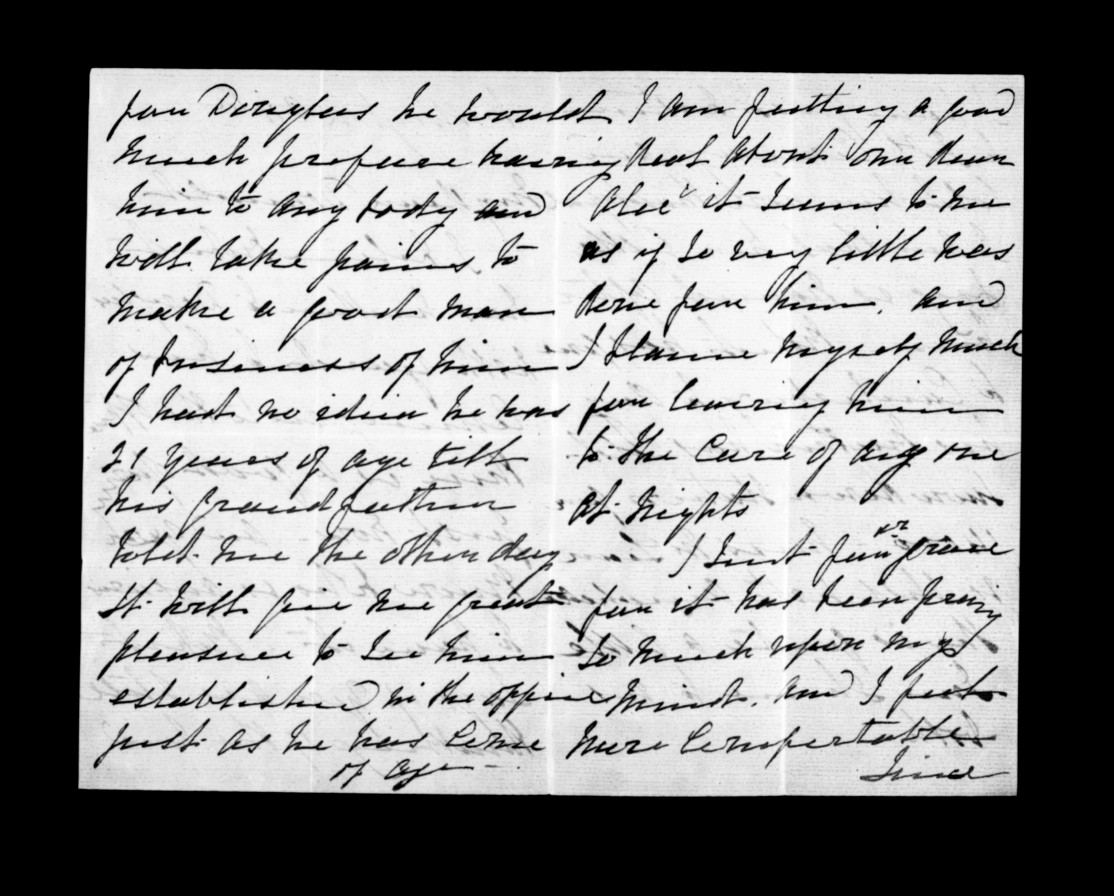 for Douglas he would
much prefere having
him to any body and
will take pains to
make a good man
of business of him
I had no idiea he was
21 years of age till
his grandfather
told me the other day
It will give me great
pleasure to see him
established in the office
just as he has come
of age -
I am fretting a good
deal about our dear
Alec it seems to me
as if so very little was
done for him. and
I blame myself much
for leaving him
to the care of any one
at nights
I sent for
for it has been
so much upon my
mind. and I feel
more comfortable
since